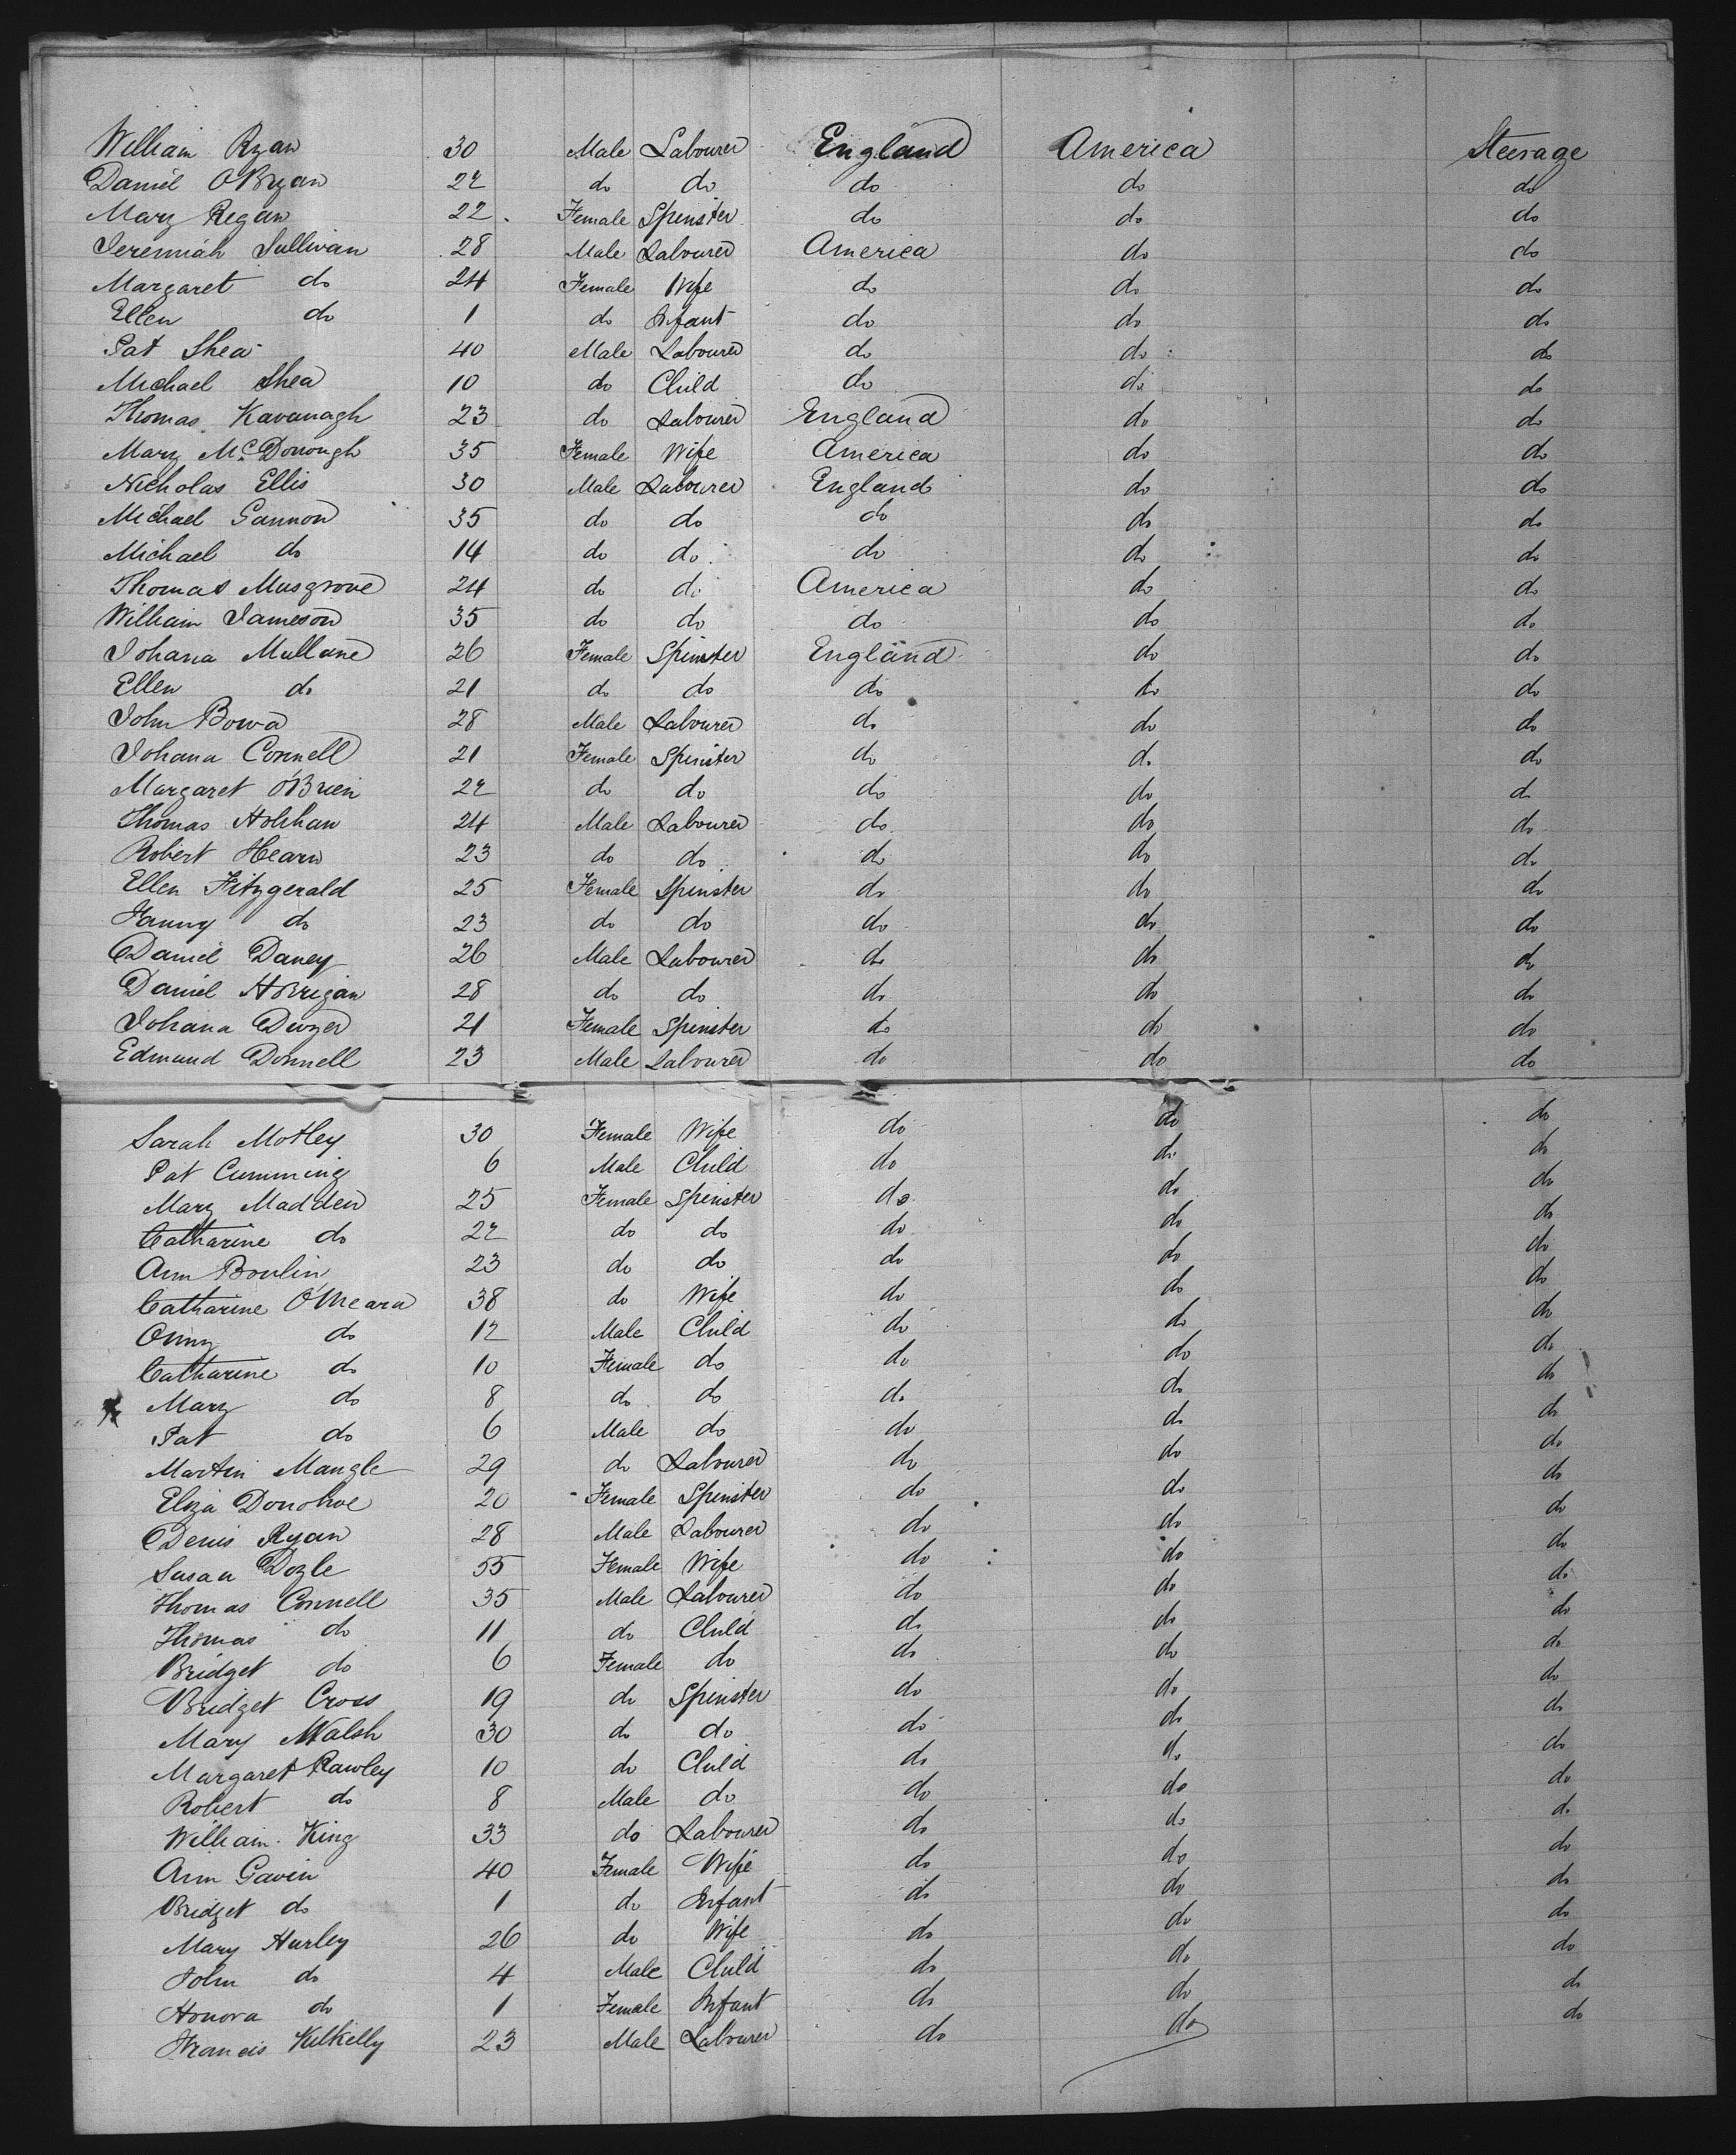 William Ryan 30 Male Labourer England America Steerage
Daniel O'Bryan 22 do do do do do
Mary Regan 22 Female Spinster do do do
Jeremiah Sullivan 28 Male Labourer America do do
Margaret do 24 Female Wife do do do
Ellen do 1 do Infant do do do
Pat Shea 40 Male Labourer do do do
Michael Shea 10 do Child do do do
Thomas Kavanagh 23 do Labourer England do do
Mary McDonough 35 Female Wife America do do
Nicholas Ellis 30 Male Labourer England do do
Michael Gannon 35 do do do do do
Michael do 14 do do do do do
Thomas Musgrove 24 do do America do do
William Jameson 35 do do do do do
Johana Mullane 26 Female Spinster England do do
Ellen do 21 do do do do do
John Bowa 28 Male Labourer do do do
Johana Connell 21 Female Spinster do do do
Margaret O'Brien 22 do do do do do
Thomas Holihan 24 Male Labourer do do do
Robert Hearn 23 do do do do do
Ellen Fitzgerald 25 Female Spinster do do do
Fanny do 23 do do do do do
Daniel Daney 26 Male Labourer do do do
Daniel Horrigan 28 do do do do do
Johana Dwyer 21 Female Spinster do do do
Edmund Donnell 23 Male Labourer do do do
Sarah Motley 30 Female Wife do do do
Pat Cumming 6 Male Child do do do
Mary Madden 25 Female Spinster do do do
Catharine do 22 do do do do do
Ann Boulin 23 do do do do do
Catharine O'Meara 38 do Wife do do do
do 12 Male Child do do do
Catharine do 10 Female do do do do
Mary do 8 do do do do do
Pat do 6 Male do do do do
Martin Mangle 29 do Labourer do do do
Eliza Donohoe 20 Female Spinster do do do
Denis Ryan 28 Male Labourer do do do
Susan Doyle 55 Female Wife do do do
Thomas Connell 35 Male Labourer do do do
Thomas do 11 do Child do do do
Bridget do 6 Female do do do do
Bridget Cross 19 do Spinster do do do
Mary Walsh 30 do do do do do
Margaret Rawley 10 do Child do do do
Robert do 8 Male do do do do
William King 33 do Labourer do do do
Ann Gavin 40 Female Wife do do do
Bridget do 1 do Infant do do do
Mary Hurley 26 do Wife do do do
John do 4 Male Child do do do
Honora do 1 Female Infant do do do
Francis Kilkelly 23 Male Labourer do do do